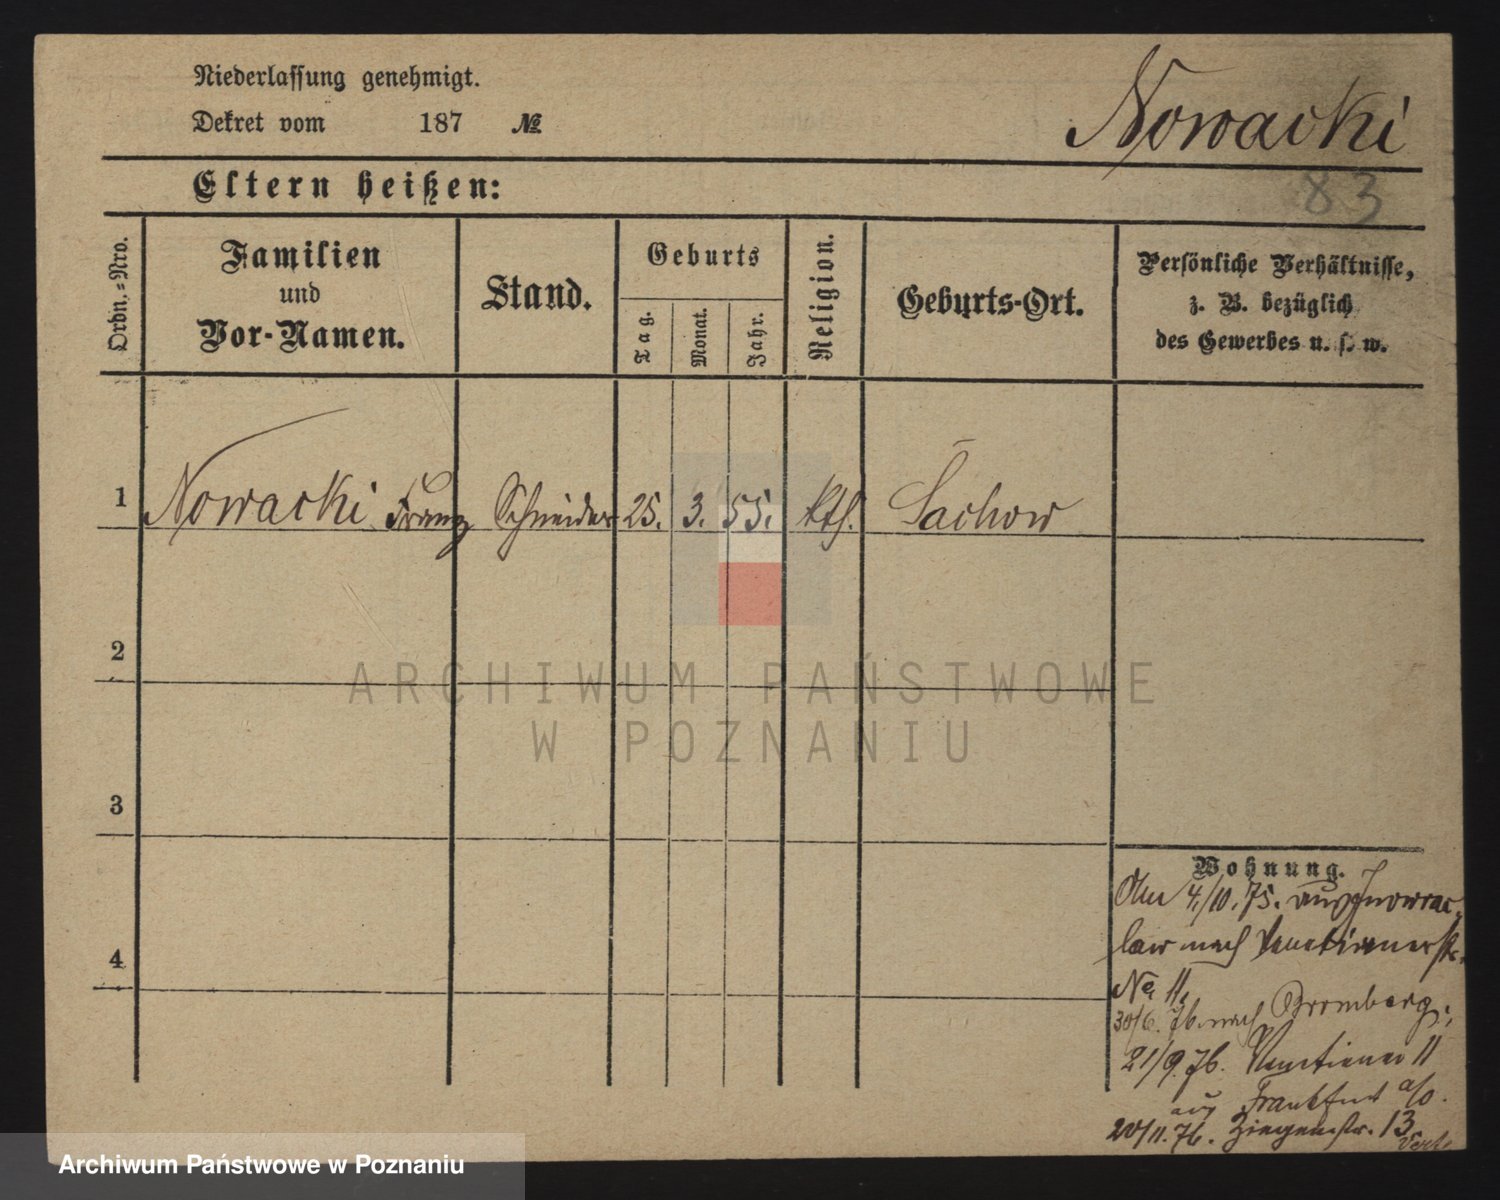 Niederlassung genehmigt.
Dekret vom 187 №
Nowacki
83
Eltern heißen:
Ordn.-Nro.
Familien
und
Vor-Namen.
Stand.
Geburts
Tag.
Monat.
Jahr.
Religion.
Geburts-Ort.
Persönliche Verhältnisse,
z. B. bezüglich
des Gewerbes u. s. w.
1 Nowacki Franz Schneider 25. 3. 55. kth. Sachow
2
ARCHIWUM PAŃSTWOWE
W POZNANIU
3
4
Wohnung.
4./10.75. aus Inowrac-
law nach Venetianerstr.
No 11,
30/6. 76. nach Bromberg,
21/9.76. Venetianer 11
aus Frankfurt a/O.
20/11.76. Ziegenstr. 13
Archiwum Państwowe w Poznaniu